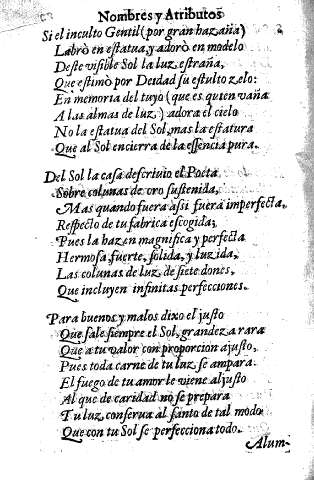 Nombres y Atributos
Si el inculto Gentil (por gran hazaña)
Labrò en estatua, y adorò en modelo
Deste visible Sol la luz estraña,
Que estimò por Deidad su estulto zelo:
En memoria del tuyo (que es quien vaña
A las almas de luz) adora el cielo
No la estatua del Sol, mas la estatura
Que al Sol encierra de la essencia pura.
Del Sol la casa descrivio el Poeta
Sobre colunas de oro sustenida,
Mas quando fuera assi fuera imperfecta,
Respecto de tu fabrica escogida;
Pues la hazen magnifica y perfecta
Hermosa, fuerte, solida, y luzida,
Las colunas de luz, de siete dones,
Que incluyen infinitas perfecciones.
Para buenos y malos dixo el justo
Que sale siempre el Sol, grandeza rara
Que a tu valor con proporcion ajusto,
Pues toda carne de tu luz se ampara:
El fuego de tu amor le viene al justo
Al que de caridad no se prepara
Tu luz, conserva al santo de tal modo
Que con tu Sol se perfecciona todo.
Alum-